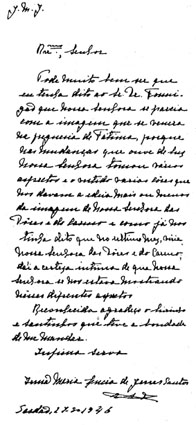 J. M. J.
Rev.mo Senhor
Pode muito bem ser que
eu tenha dito ao Sr. Dr. Formi-
gão que Nossa Senhora se parecia
com a imagem que se venera
na pequenina de Fátima, porque
nas mudanças que houve de luz
Nossa Senhora tomou vários
aspectos e o vestido varias côres que
nos davam a ideia mais ou menos
da imagem de Nossa Senhora das
Dores e do Carmo e como já nos
tinha dito que no ultimo mez, viria
Nossa Senhora das Dores e do Carmo,
daí a certeza intima de que Nossa
Senhora se nos estava mostrando
nesses diferentes aspectos
Reconhecida agradeço o livrinho
e santinhos que teve a bondade
de me mandar.
serva
Irmã Maria Lucia de Jesus Santos
1946